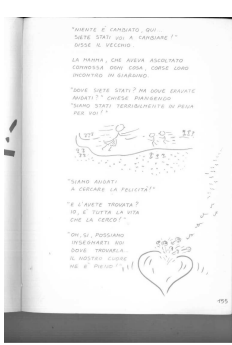 "NIENTE È CAMBIATO, QUI...
SIETE STATI VOI A CAMBIARE!"
DISSE IL VECCHIO.
LA MAMMA, CHE AVEVA ASCOLTATO
COMMOSSA OGNI COSA, CORSE LORO
INCONTRO IN GIARDINO.
"DOVE SIETE STATI? MA DOVE ERAVATE
ANDATI?" CHIESE PIANGENDO
"SIAMO STATI TERRIBILMENTE IN PENA
PER VOI!"
"SIAMO ANDATI
A CERCARE LA FELICITÀ!"
"E L'AVETE TROVATA?
IO, È TUTTA LA VITA
CHE LA CERCO!"
"OH, SI, POSSIAMO
INSEGNARTI NOI
DOVE TROVARLA.
IL NOSTRO CUORE
NE È PIENO!"
!